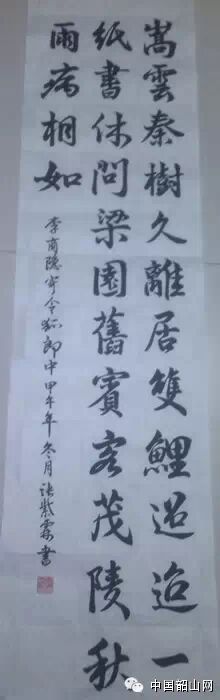 嵩雲秦樹久離居雙鯉迢迢一
纸書休問梁園舊賓客茂陵秋
雨病相如
李商隐寄令狐郎中甲午年冬月张紫霖書
中国韶山网